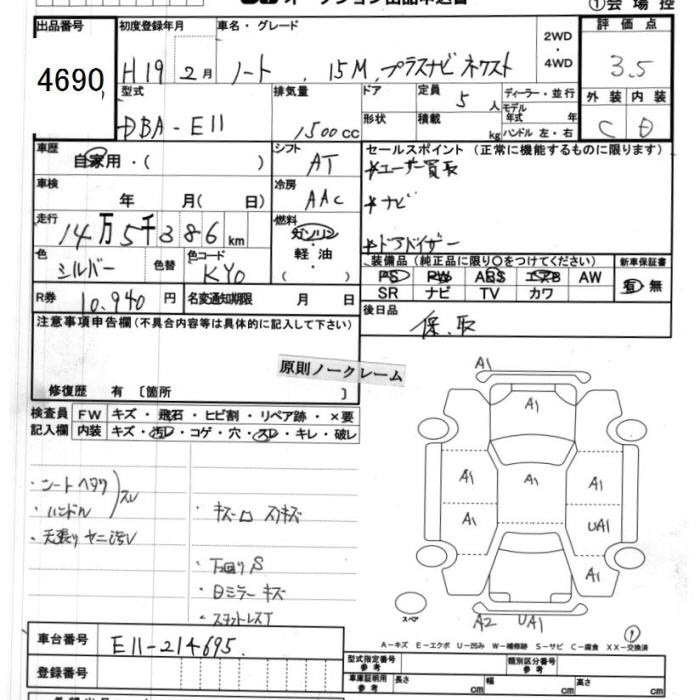 ①会場控
出品番号
4690
初度登録年月
H19 2月
車名・グレード
ノート 15M,プラスナビネクスト
2WD
・
4WD
評価点
3.5
外装 内装
C D
型式
DBA-E11
排気量
1500cc
ドア
形状
定員 5人
積載 kg
ディーラー・並行
モデル年式 年
ハンドル 左・右
車歴
自家用・( )
シフト
AT
セールスポイント(正常に機能するものに限ります)
*ユーザー買取
*ナビ
*ドアバイザー
車検
年 月( 日)
冷房
AAC
走行
14万5千386km
燃料
ガソリン
・
軽油
・
( )
色
シルバー
色替
色コード
KY0
装備品(純正品に限り○をつけてください)
PS PW ABS エアB AW
SR ナビ TV カワ
新車保証書
有 無
R券
10,940円
名変通知期限 月 日
後日品
保、取
注意事項申告欄(不具合内容等は具体的に記入して下さい)
原則ノークレーム
修復歴 有〔箇所 〕
検査員記入欄
FW キズ・飛石・ヒビ割・リペア跡・×要
内装 キズ・汚レ・コゲ・穴・スレ・キレ・破レ
・シートヘタリ
・ハンドル
スレ
・天張りヤニ汚レ
・下回りS
・ミラーキズ
A1
A1
A1 A1 A1
A1 UA1
A1
スペア
A2 UA1
①
A-キズ E-エクボ U-凹み W-補修跡 S-サビ C-腐食 XX-交換済
車台番号
E11-214695
登録番号
型式指定番号
参考
類別区分番号
参考
車庫証明用
参考
長さ cm
幅 cm
高さ cm